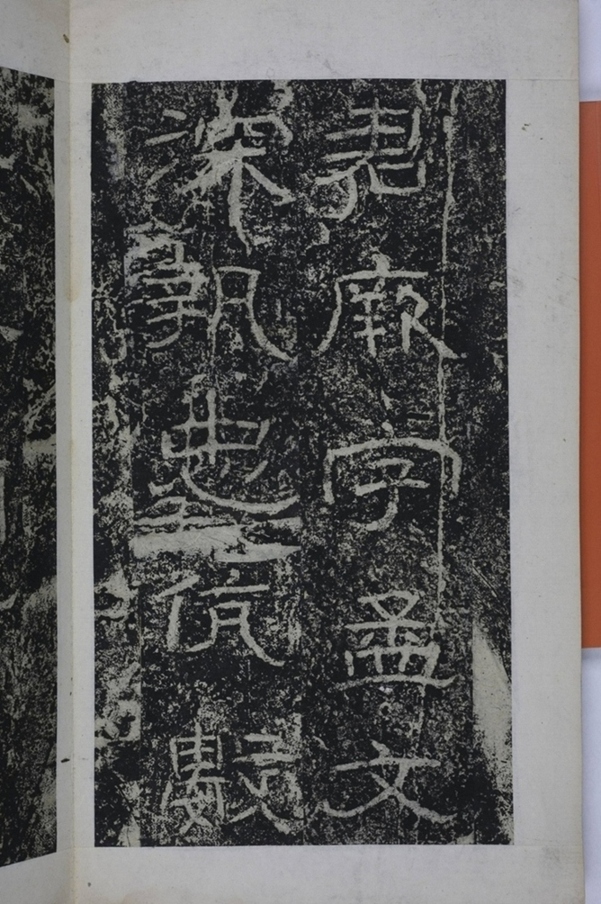 君厥字孟文
深執忠伉數